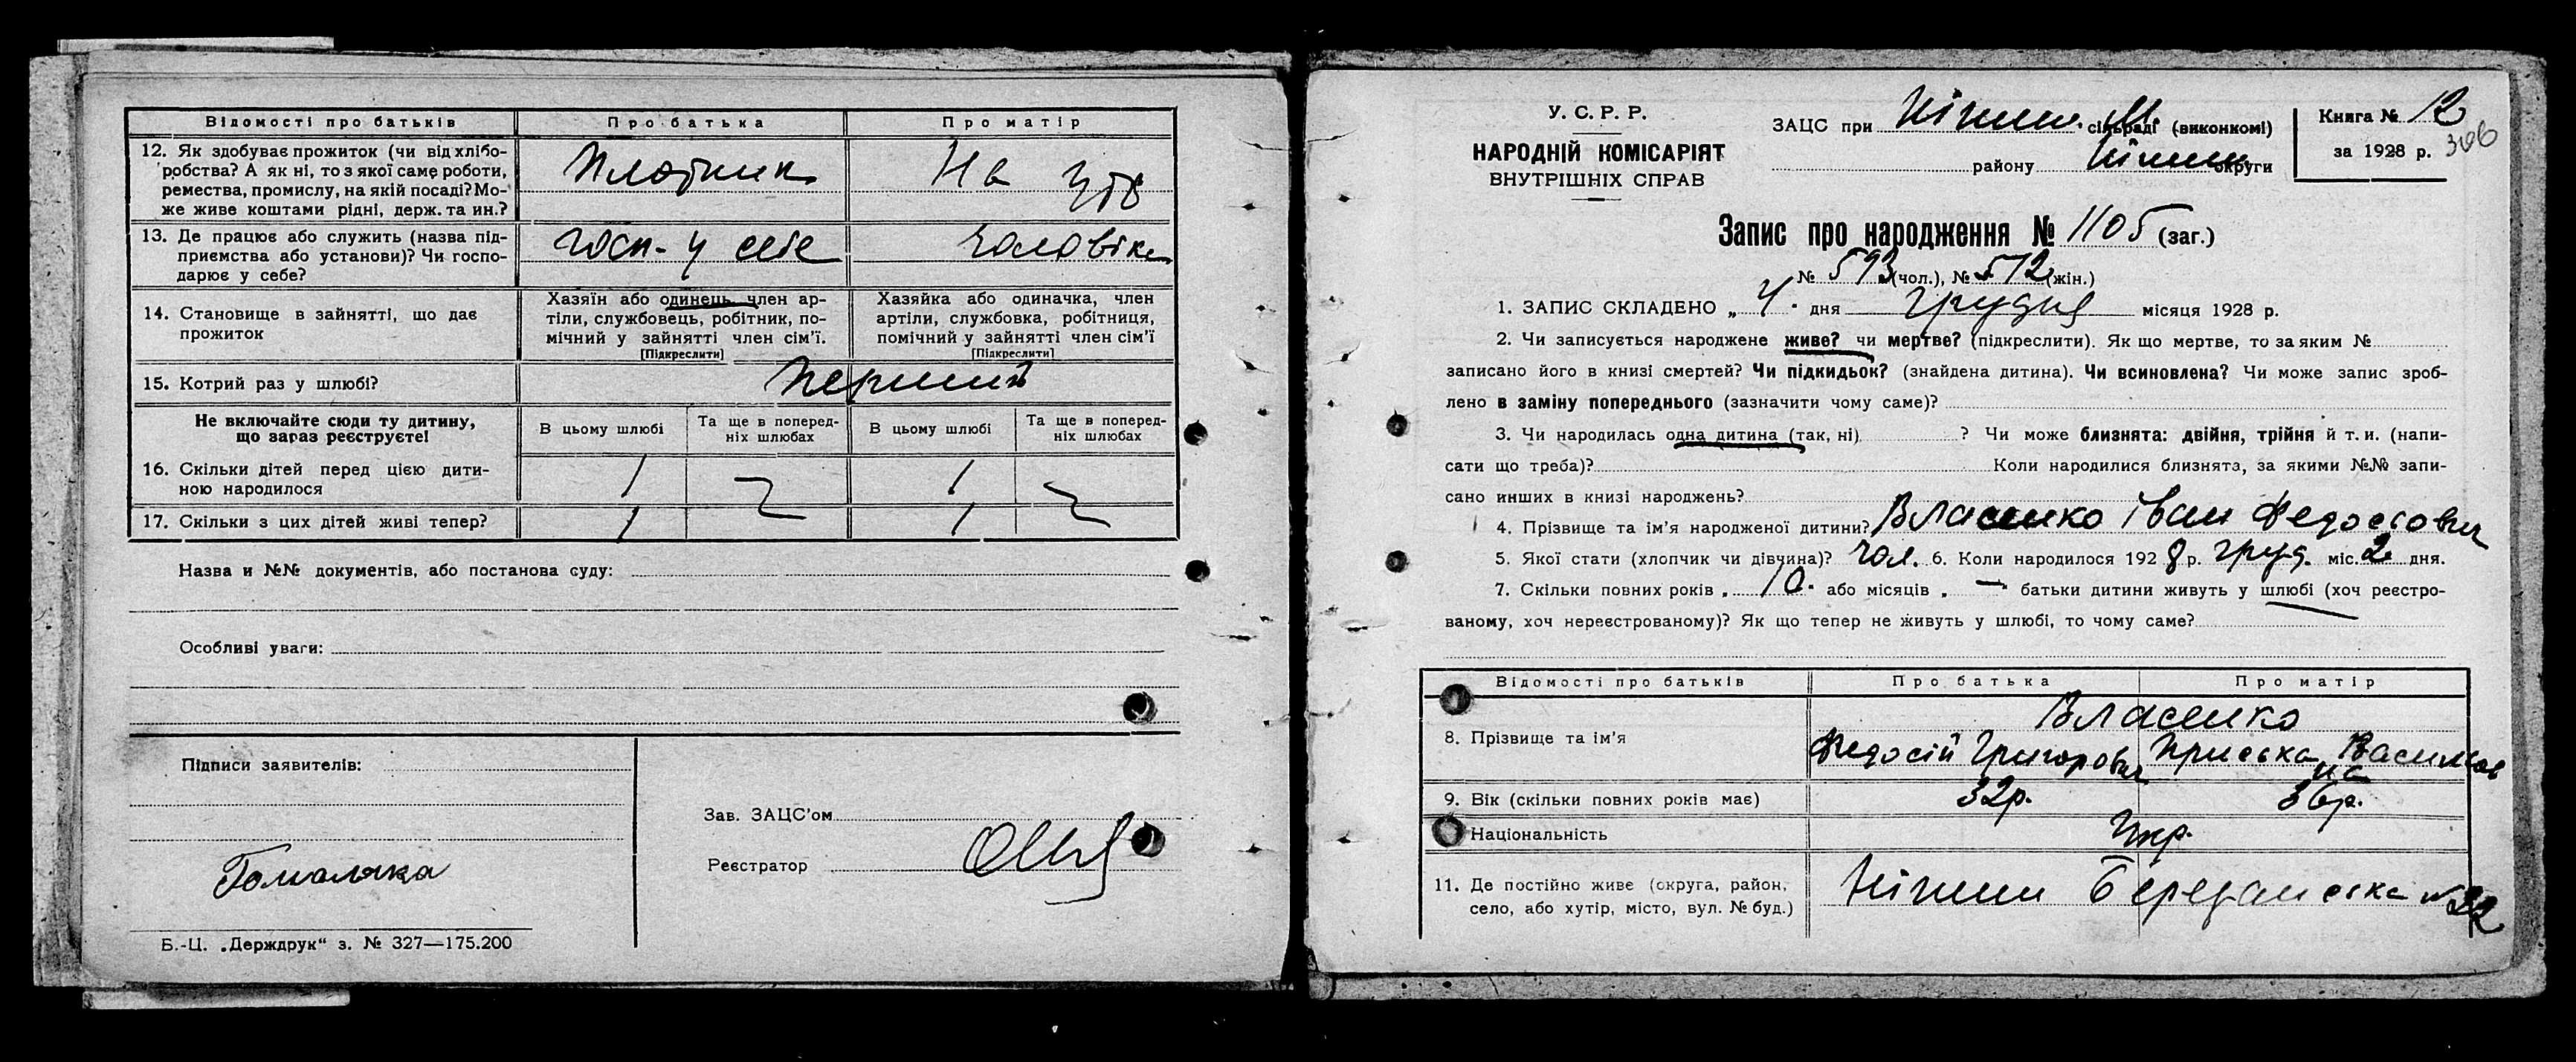 Відомості про батьків Про батька Про матір
12. Як здобуває прожиток (чи від хлібо-
робства? А як ні, то з якої саме роботи,
ремества, промислу, на якій посаді? Мо-
же живе коштами рідні, держ. та ин.?
Плотник На утв
13. Де працює або служить (назва під-
приємства або установи)? Чи госпо-
дарює у себе?
госп- у себе чоловіка
14. Становище в зайнятті, що дає
прожиток
Хазяїн або одинець, член ар-
тіли, службовець, робітник, по-
мічний у зайнятті член сім'ї.
[Підкреслити]
Хазяйка або одиначка, член
артіли, службовка, робітниця,
помічний у зайнятті член сім'ї
[Підкреслити]
15. Котрий раз у шлюбі? перший
Не включайте сюди ту дитину,
що зараз реєструєте!
В цьому шлюбі Та ще в поперед-
ніх шлюбах В цьому шлюбі Та ще в поперед-
ніх шлюбах
16. Скільки дітей перед цією дити-
ною народилося 1 1
17. Скільки з цих дітей живі тепер? 1 1
Назва и №№ документів, або постанова суду:
Особливі уваги:
Підписи заявителів:
Зав. ЗАЦС'ом
Реєстратор
Б.-Ц. „Держдрук“ з. № 327—175.200
У. С. Р. Р.
НАРОДНІЙ КОМІСАРІЯТ
ВНУТРІШНІХ СПРАВ
ЗАЦС при Ніжин. М. сільраді (виконкомі)
району Ніжин округи
Книга № 12
за 1928 р. 306
Запис про народження № 1105 (заг.)
№ 593 (чол.), № 512 (жін.)
1. ЗАПИС СКЛАДЕНО „ 4 “ дня грудня місяця 1928 р.
2. Чи записується народжене живе? чи мертве? (підкреслити). Як що мертве, то за яким №
записано його в книзі смертей? Чи підкидьок? (знайдена дитина). Чи всиновлена? Чи може запис зроб-
лено в заміну попереднього (зазначити чому саме)?
3. Чи народилась одна дитина (так, ні) ? Чи може близнята: двійня, трійня й т. и. (напи-
сати що треба)? Коли народилися близнята, за якими №№ запи-
сано инших в книзі народжень?
4. Прізвище та ім'я народженої дитини? Власенко Іван Федосович
5. Якої стати (хлопчик чи дівчина)? чол. 6. Коли народилося 1928 р. груд. міс. 2 дня.
7. Скільки повних років „ 10 “ або місяців „ — “ батьки дитини живуть у шлюбі (хоч реєстро-
ваному, хоч нереєстрованому)? Як що тепер не живуть у шлюбі, то чому саме?
Відомості про батьків Про батька Про матір
8. Прізвище та ім'я
Власенко
Федосій Григорович Приська Василівна
9. Вік (скільки повних років має) 32р. 36р.
Національність Укр.
11. Де постійно живе (округа, район,
село, або хутір, місто, вул. № буд.)
Ніжин